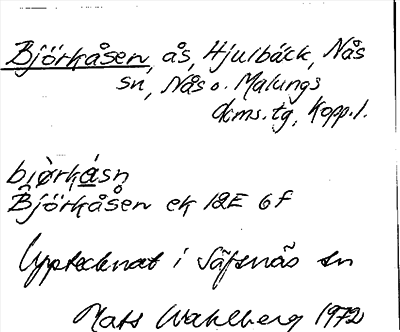 Björkåsen, ås, Hjulbäck, Nås
sn, Nås o. Malungs
dcms.tg, Kopp.l.
bjö̀rkásn
Björkåsen ek 12E 6f
Upptecknat i Säfsnäs sn
Mats Wahlberg 1972